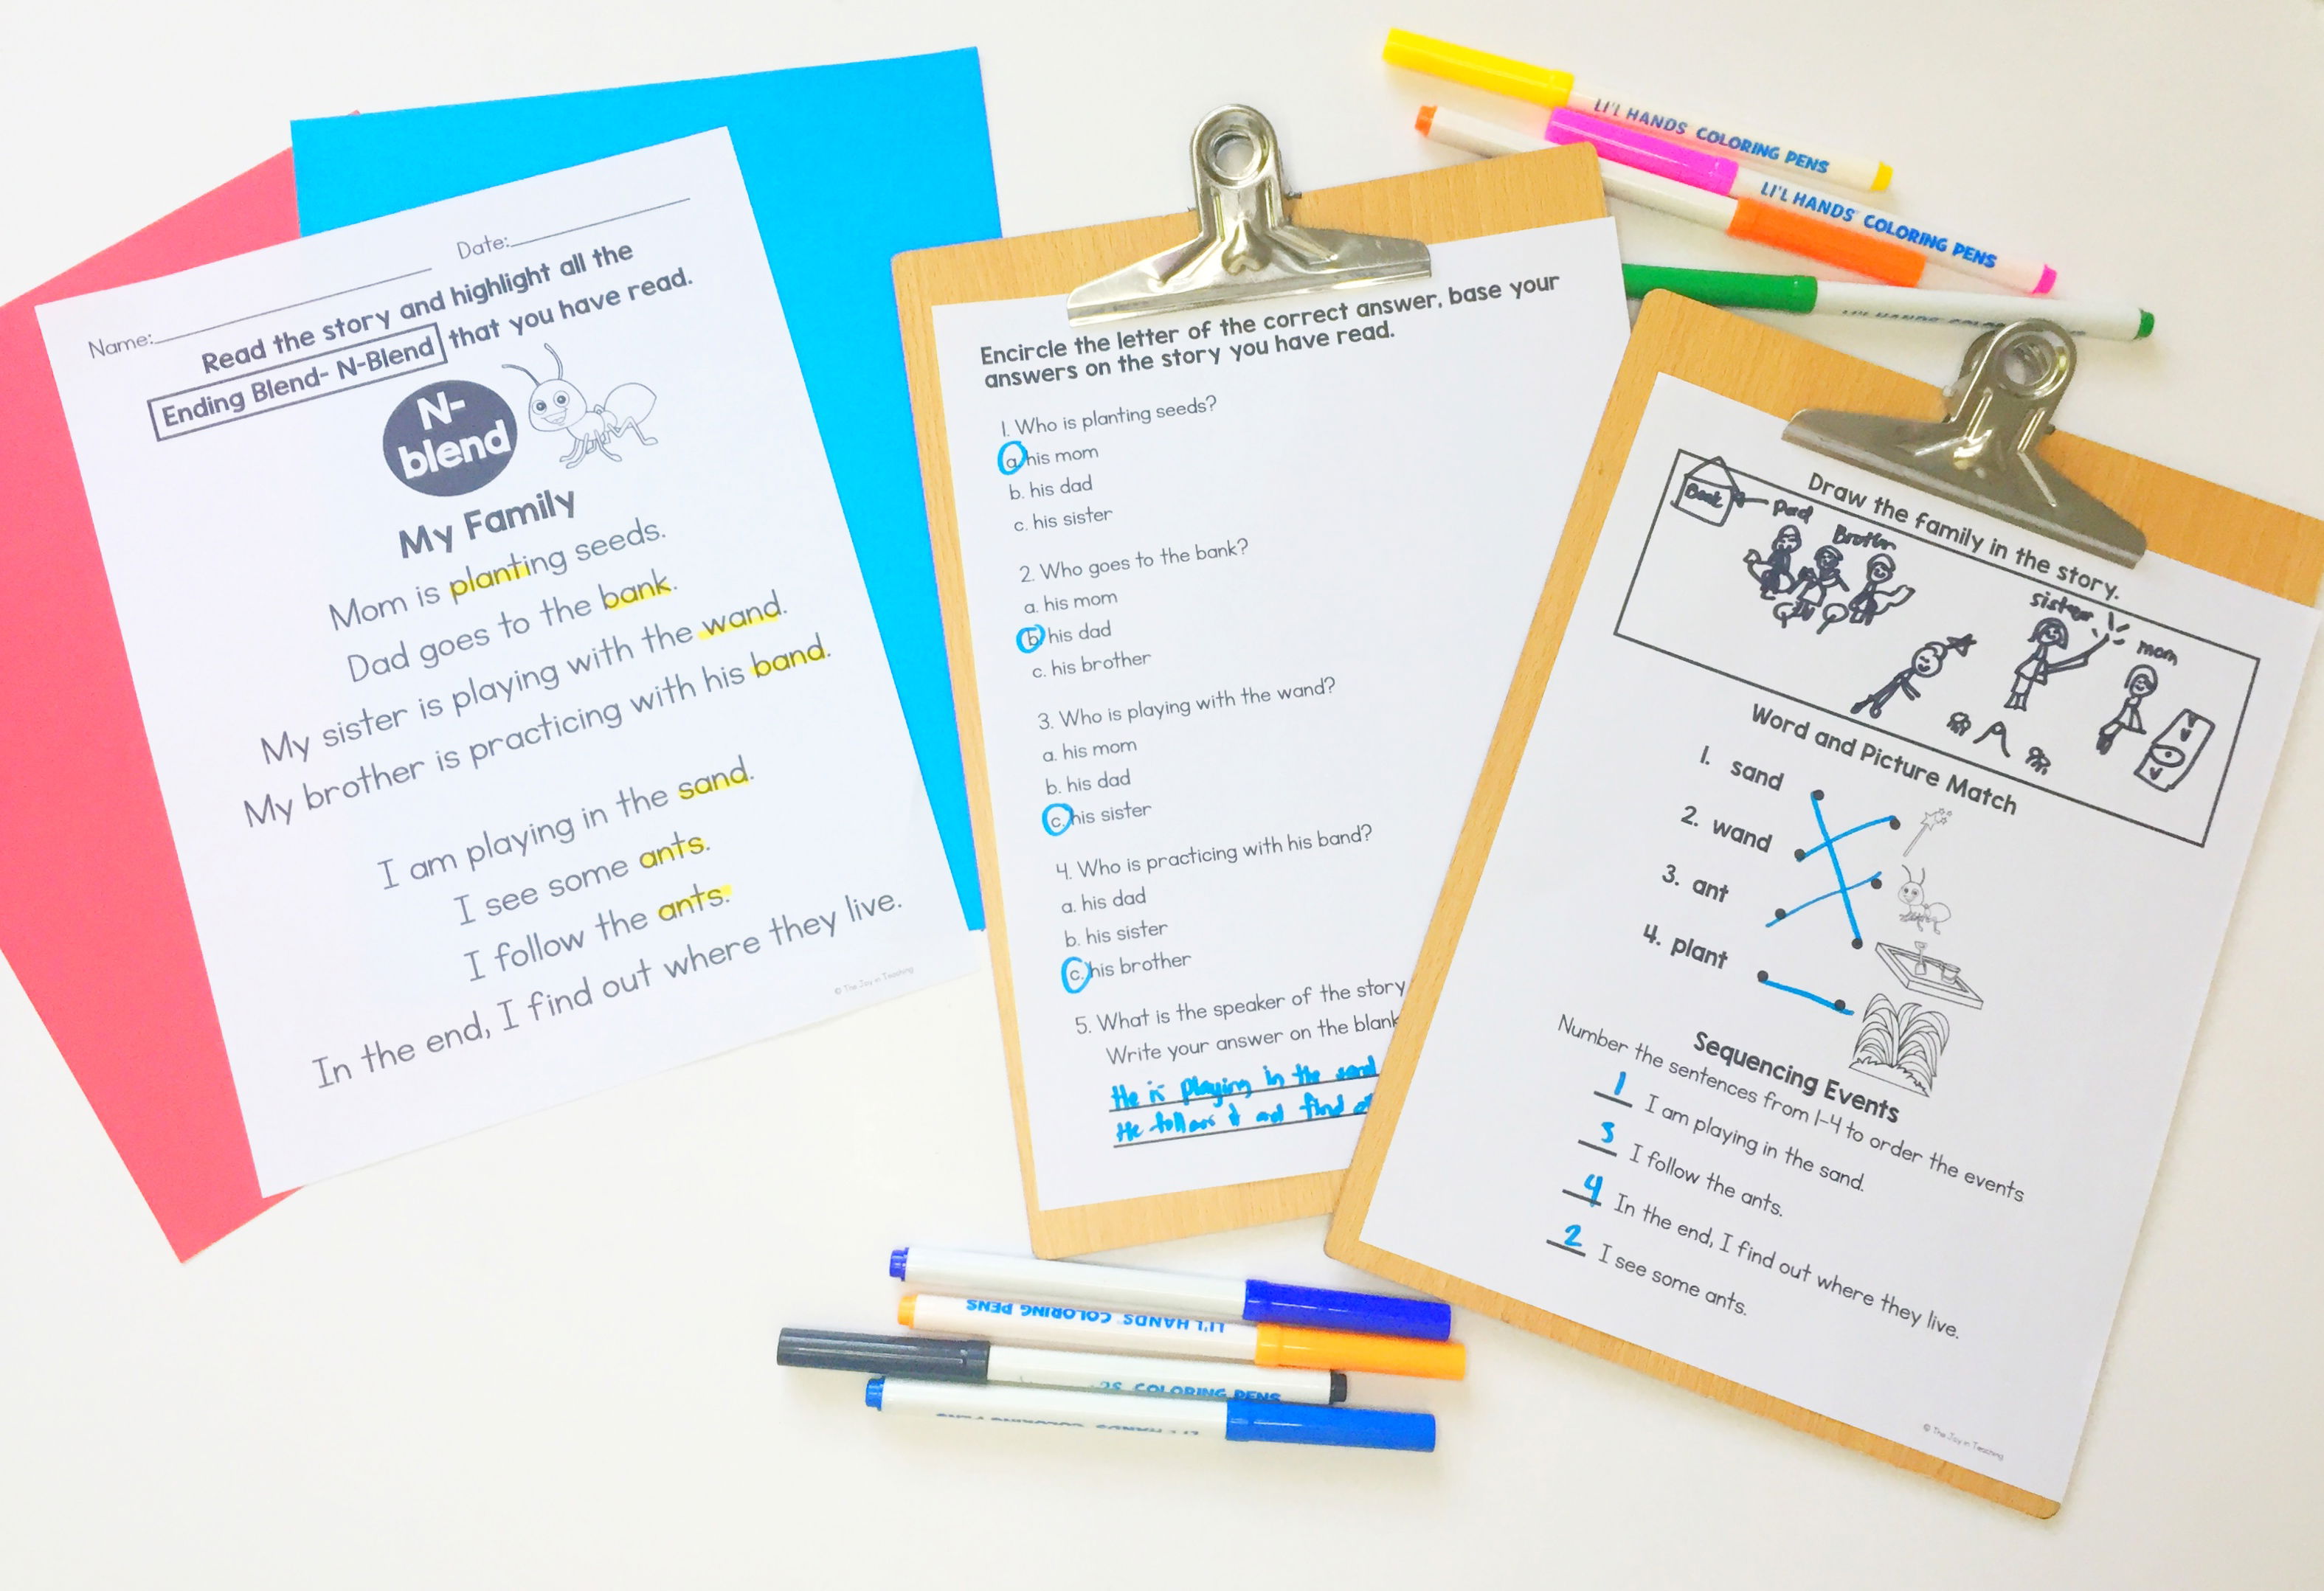 Name:
Date:
Read the story and highlight all the
Ending Blend- N-Blend that you have read.
N-
blend
My Family
Mom is planting seeds.
Dad goes to the bank.
My sister is playing with the wand.
My brother is practicing with his band.
I am playing in the sand.
I see some ants.
I follow the ants.
In the end, I find out where they live.
© The Joy in Teaching
Encircle the letter of the correct answer, base your
answers on the story you have read.
1. Who is planting seeds?
a. his mom
b. his dad
c. his sister
2. Who goes to the bank?
a. his mom
b. his dad
c. his brother
3. Who is playing with the wand?
a. his mom
b. his dad
c. his sister
4. Who is practicing with his band?
a. his dad
b. his sister
c. his brother
5. What is the speaker of the story
Write your answer on the blank
He is playing in the sand
He follows and find
Draw the family in the story.
Bank
Brother
sister
mom
Word and Picture Match
1. sand
2. wand
3. ant
4. plant
Sequencing Events
Number the sentences from 1-4 to order the events
1 I am playing in the sand.
3 I follow the ants.
4 In the end, I find out where they live.
2 I see some ants.
© The Joy in Teaching
LI'L HANDS COLORING PENS
LI'L HANDS COLORING PENS
LI'L HANDS COLORING PENS
COLORING PENS